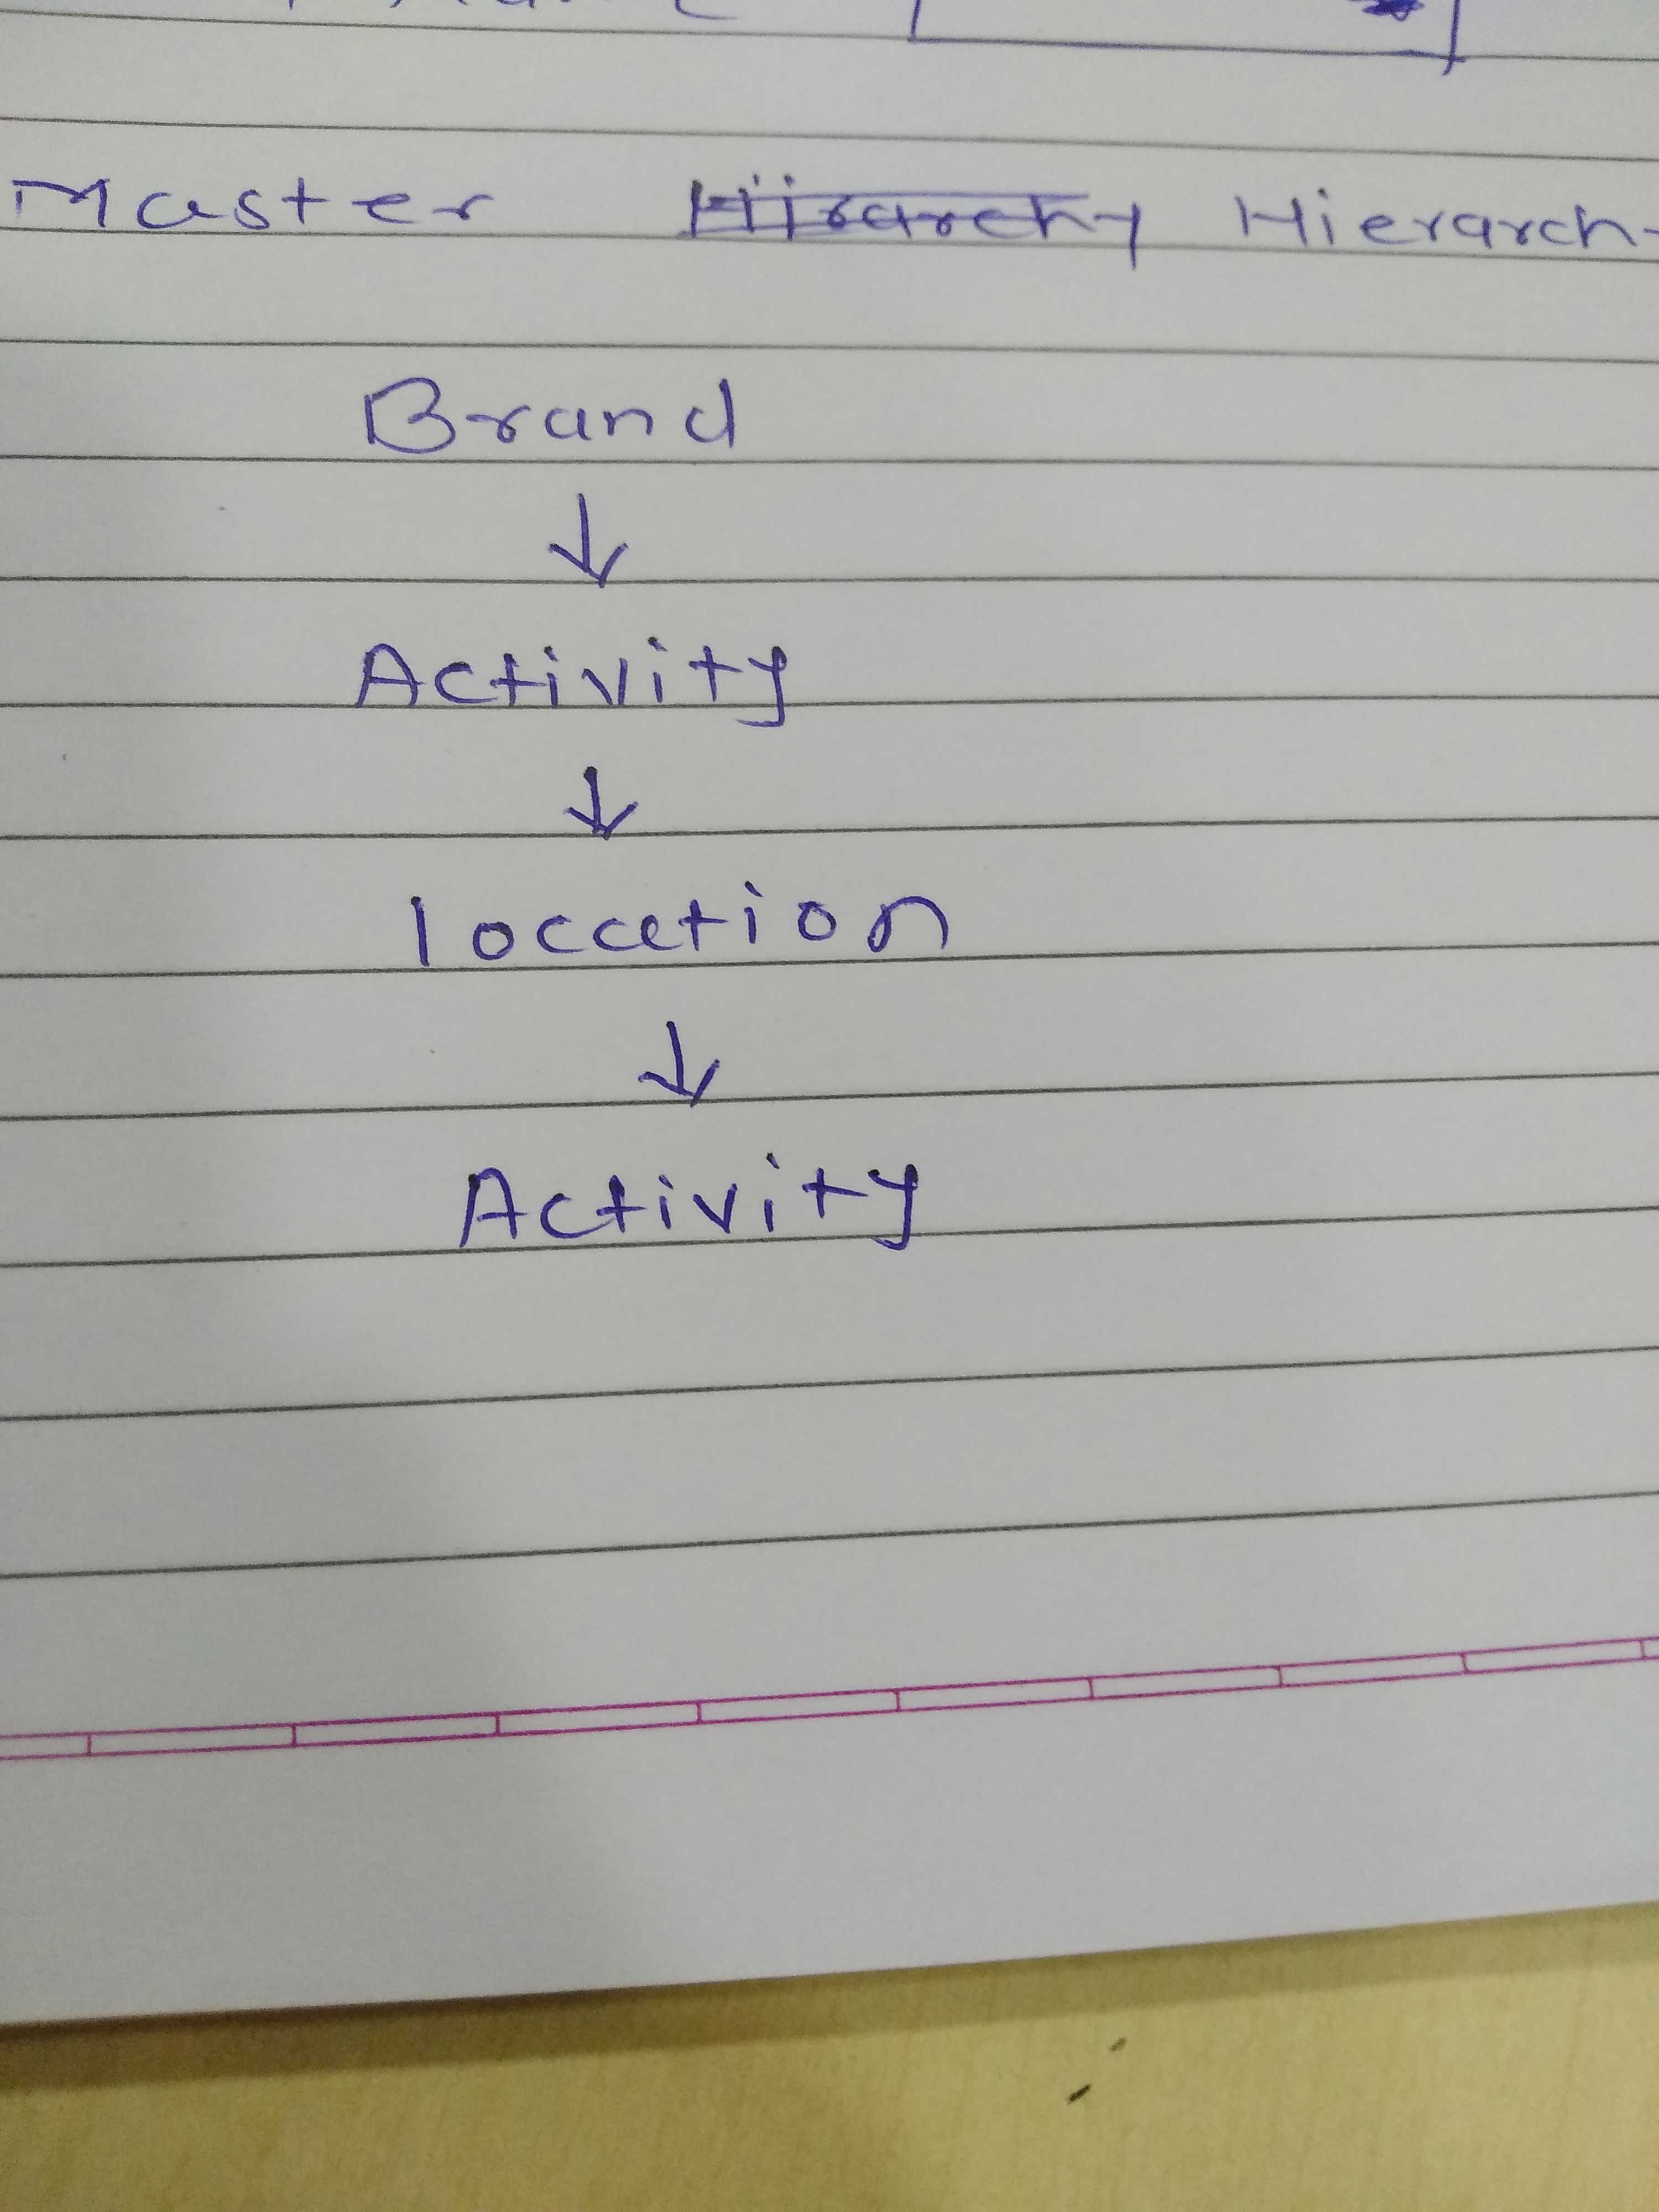 Master Hirarchy Hierarch
Brand
↓
Activity
↓
location
↓
Activity